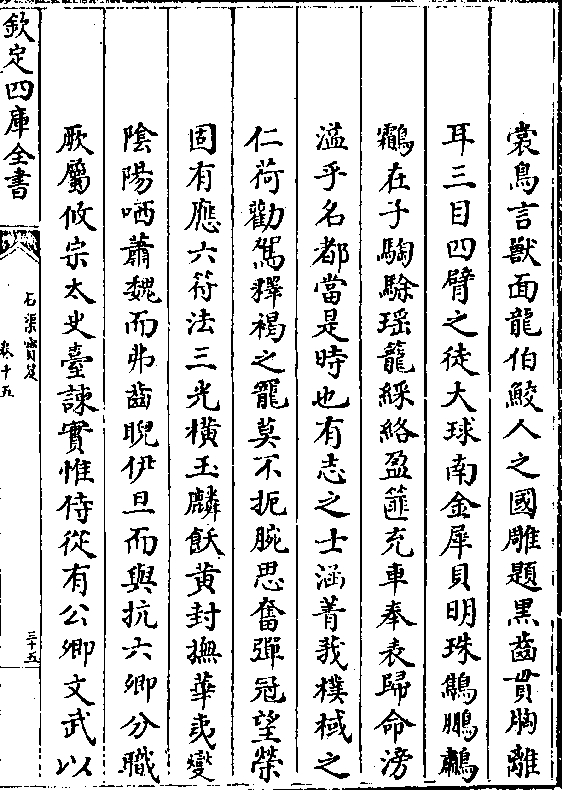 裳鳥言獸面龍伯鮫人之國雕題黒齒貫胸離
耳三目四臂之徒大球南金犀貝明珠鷫鵬鸕
鷸在子騊駼瑶籠綵絡盈篚充車奉表歸命滂
溢乎名都當是時也有志之士涵菁莪樸棫之
仁荷勸駕釋褐之寵莫不扼腕思奮彈冠望榮
固有應六符法三光橫玉麟飫黄封撫華夷燮
陰陽哂蕭魏而弗齒睨伊旦而與抗六卿分職
厥屬攸宗太史臺諫實惟侍從有公卿文武以
欽定四庫全書
石渠寶笈
卷十五
三十五